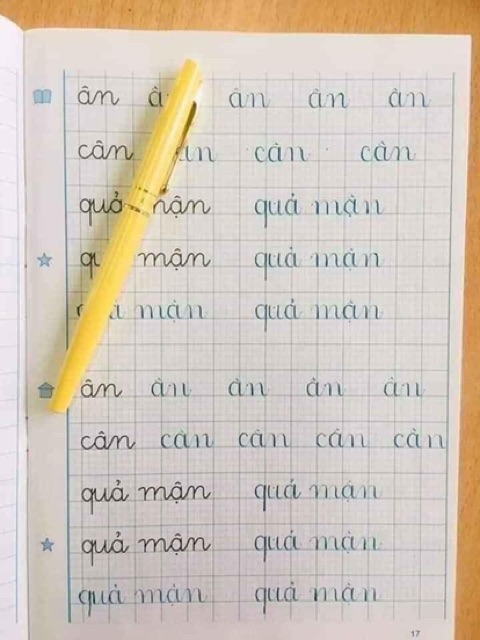 ân ân ân ân
cân cân cân
quả mận quả mận
mận quả mận
mận quả mận
ân ân ân ân ân
cân cân cân cân cân
quả mận quả mận
quả mận quả mận
quả mận quả mận
17